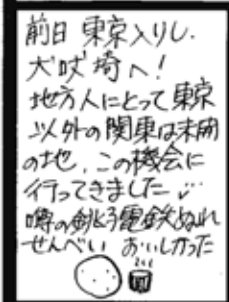 前日 東京入りし.
犬吠埼へ!
地方人にとって東京
以外の関東は未開
の地、この機会に
行ってきました
噂の銚子電鉄ぬれ
せんべい おいしかった